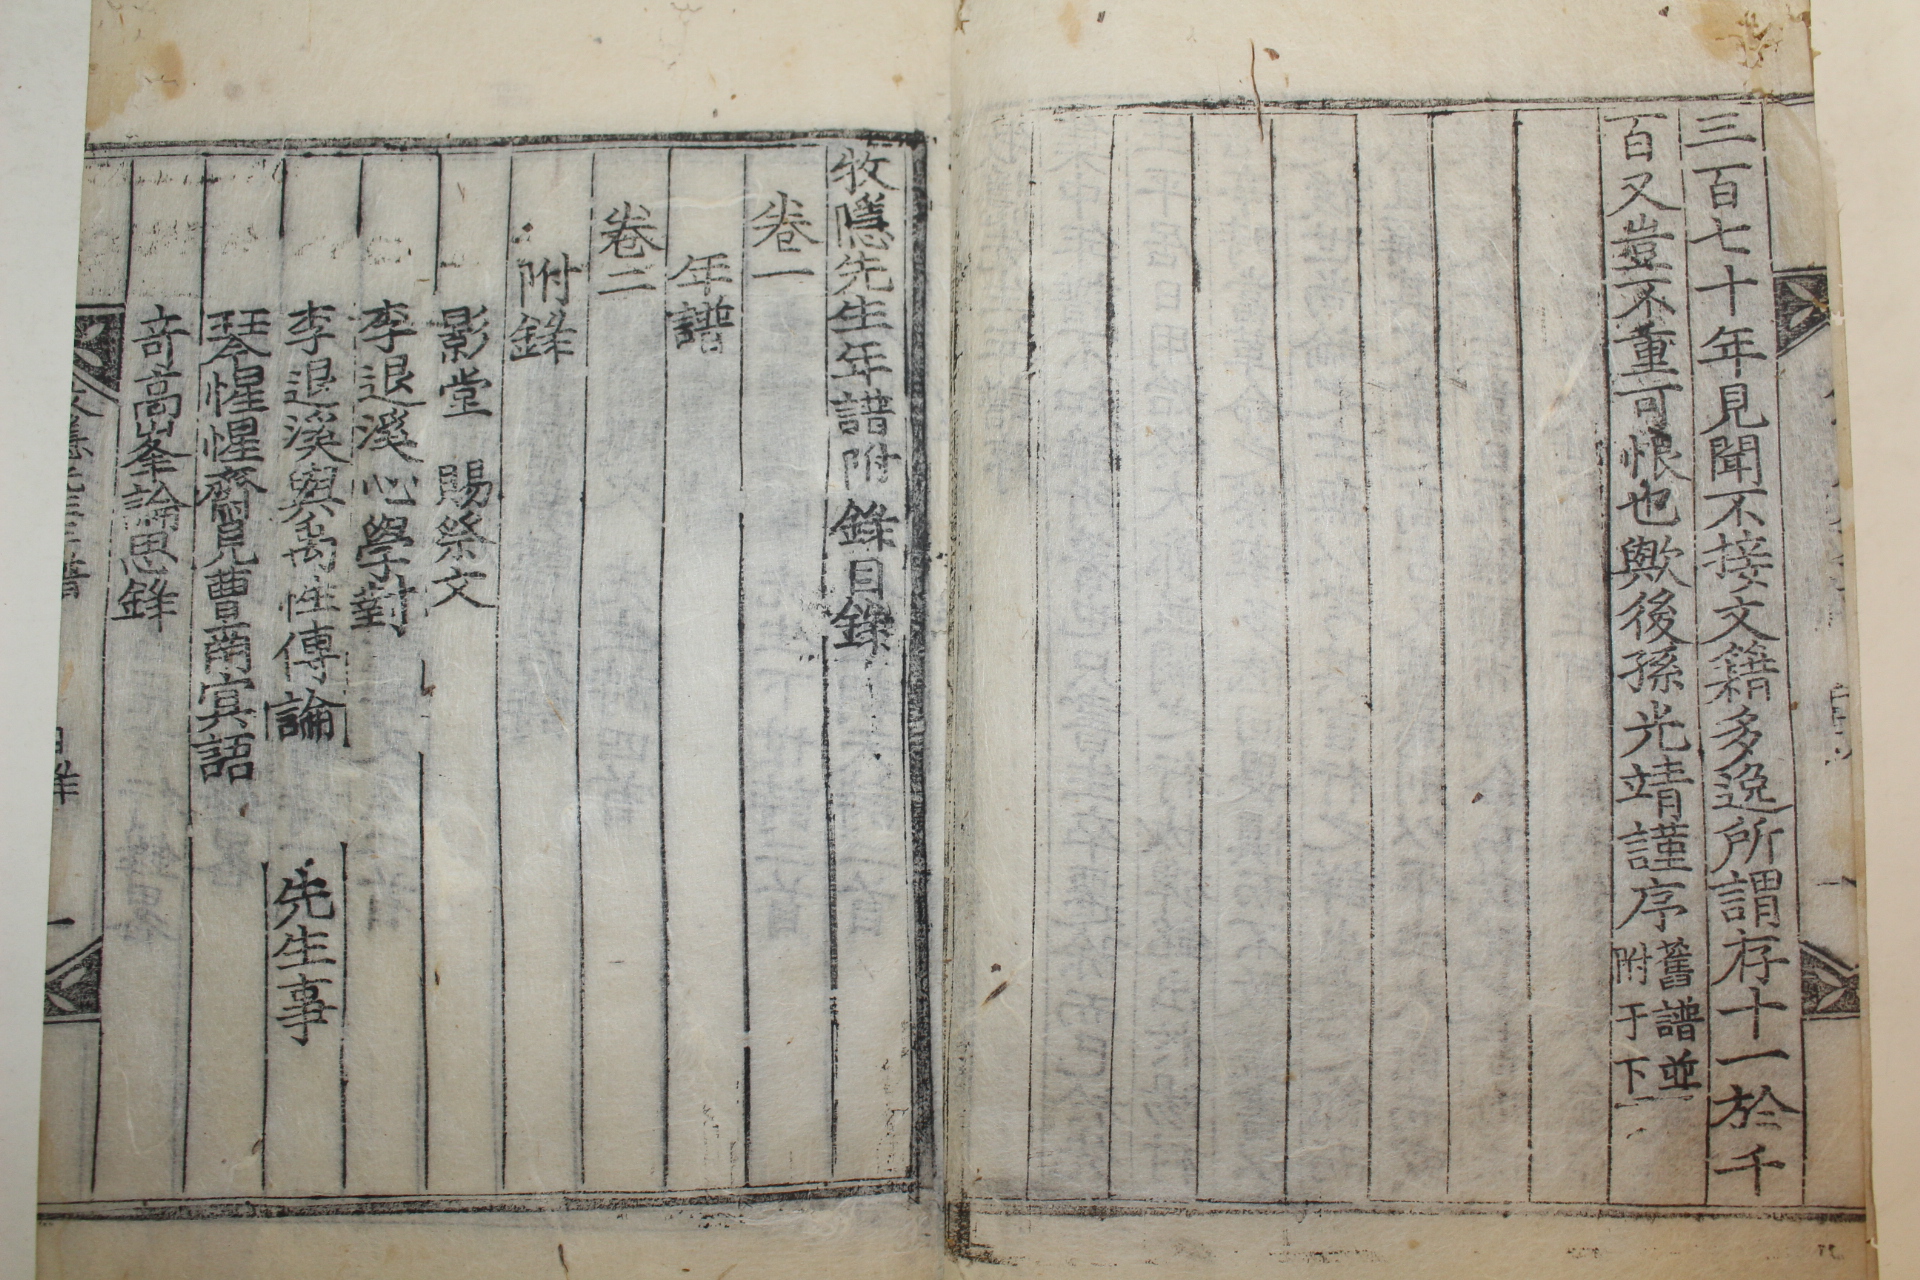 三百七十年見聞不接文籍多逸所謂存十一於千
百又豈不重可恨也歟後孫光靖謹序舊譜並附于下
牧隱先生年譜附錄目錄
卷一
年譜
卷二
附錄
影堂 賜祭文
李退溪心學對
李退溪與禹性傳論 先生事
琴惺惺齋見曹南冥語
奇高峯論思錄
目錄
一